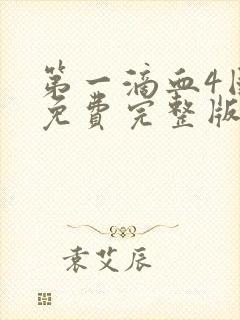 第一滴血4
免费完整版
袁艾辰